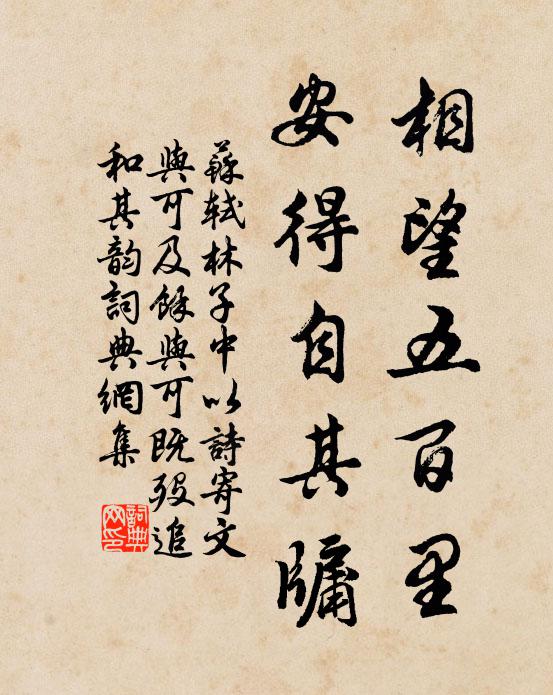 相望五百里
安得自其牖
蘇軾林子中以詩寄文
與可及餘與可既歿追
和其韵詞典網集
詞典
网印